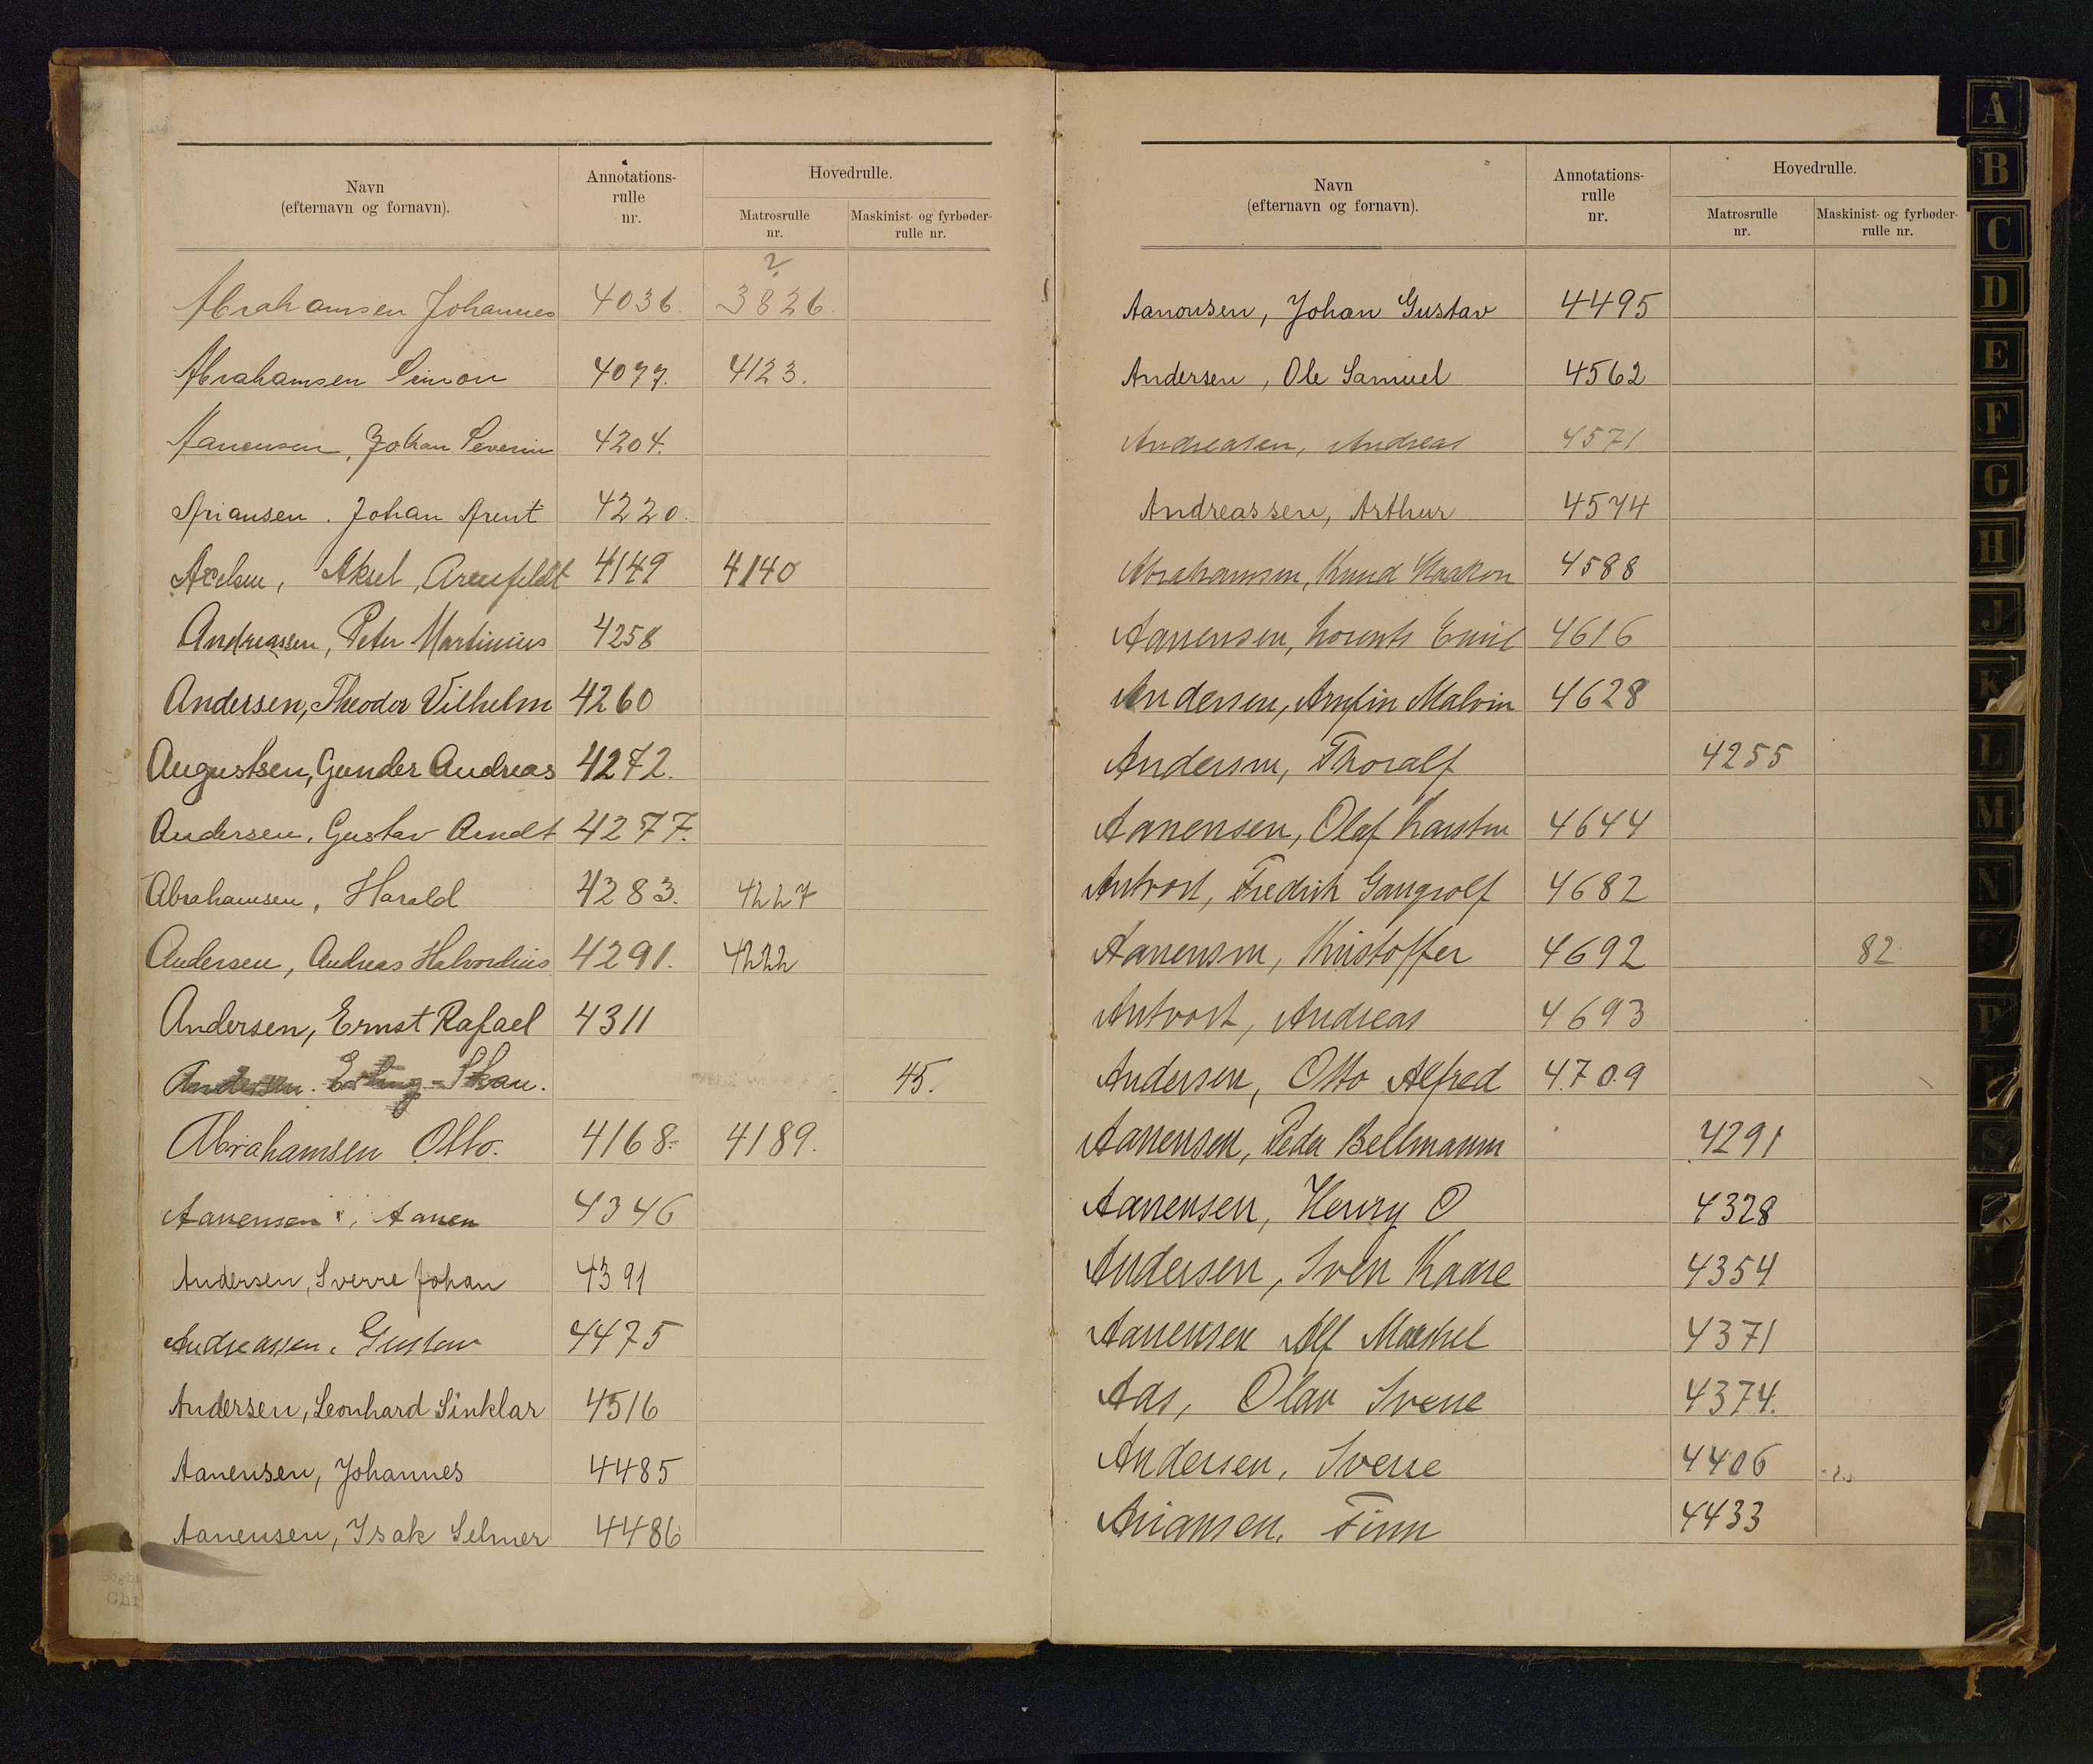 Navn (efternavn og fornavn). Annotations-rulle nr. Hovedrulle. Matrosrulle nr. Maskinist- og fyrbøder-rulle nr.
?
Abrahamsen Johannes 4036. 3826.
Abrahamsen Simon 4077. 4123.
Aanensen, Johan Severin 4204.
Ariansen. Johan Arent 4220.
Axelsen, Aksel Arenfeldt 4149 4140
Andreassen, Peter Martinius 4258
Andersen, Theodor Vilhelm 4260
Augustsen, Gunder Andreas 4272.
Andersen, Gustav Arndt 4277.
Abrahamsen, Harald 4283. 4227
Andersen, Andreas Halvordius 4291. 4222
Andersen, Ernst Rafael 4311
Andersen. Erling Skau. 45.
Abrahamsen Otto. 4168. 4189.
Aanensen, Aanen 4346
Andersen, Sverre Johan 4391
Andreassen, Gustav 4475
Andersen, Leonhard Sinklar 4516
Aanensen, Johannes 4485
Aanensen, Isak Selmer 4486
Navn (efternavn og fornavn). Annotations-rulle nr. Hovedrulle. Matrosrulle nr. Maskinist- og fyrbøder-rulle nr.
Aanonsen, Johan Gustav 4495
Andersen, Ole Samuel 4562
Andreasen, Andreas 4571
Andreassen, Arthur 4574
Abrahamsen, Knud Haakon 4588
Aanensen, Lorents Emil 4616
Andersen, Arnfin Malvin 4628
Andersen, Thoralf 4255
Aanensen, Olaf Karsten 4644
Antvort, Fredrik Gangrolf 4682
Aanensen, Kristoffer 4692 82
Antvort, Andreas 4693
Andersen, Otto Alfred 4709
Aanensen, Peder Bellmann 4291
Aanensen, Henry O 4328
Andersen, Sven Kaare 4354
Aanensen Alf 4371
Aas, Olav Sverre 4374.
Andersen, Sverre 4406
Ariansen, Finn 4433
A
B
C
D
E
F
G
H
J
K
L
M
N
P
S